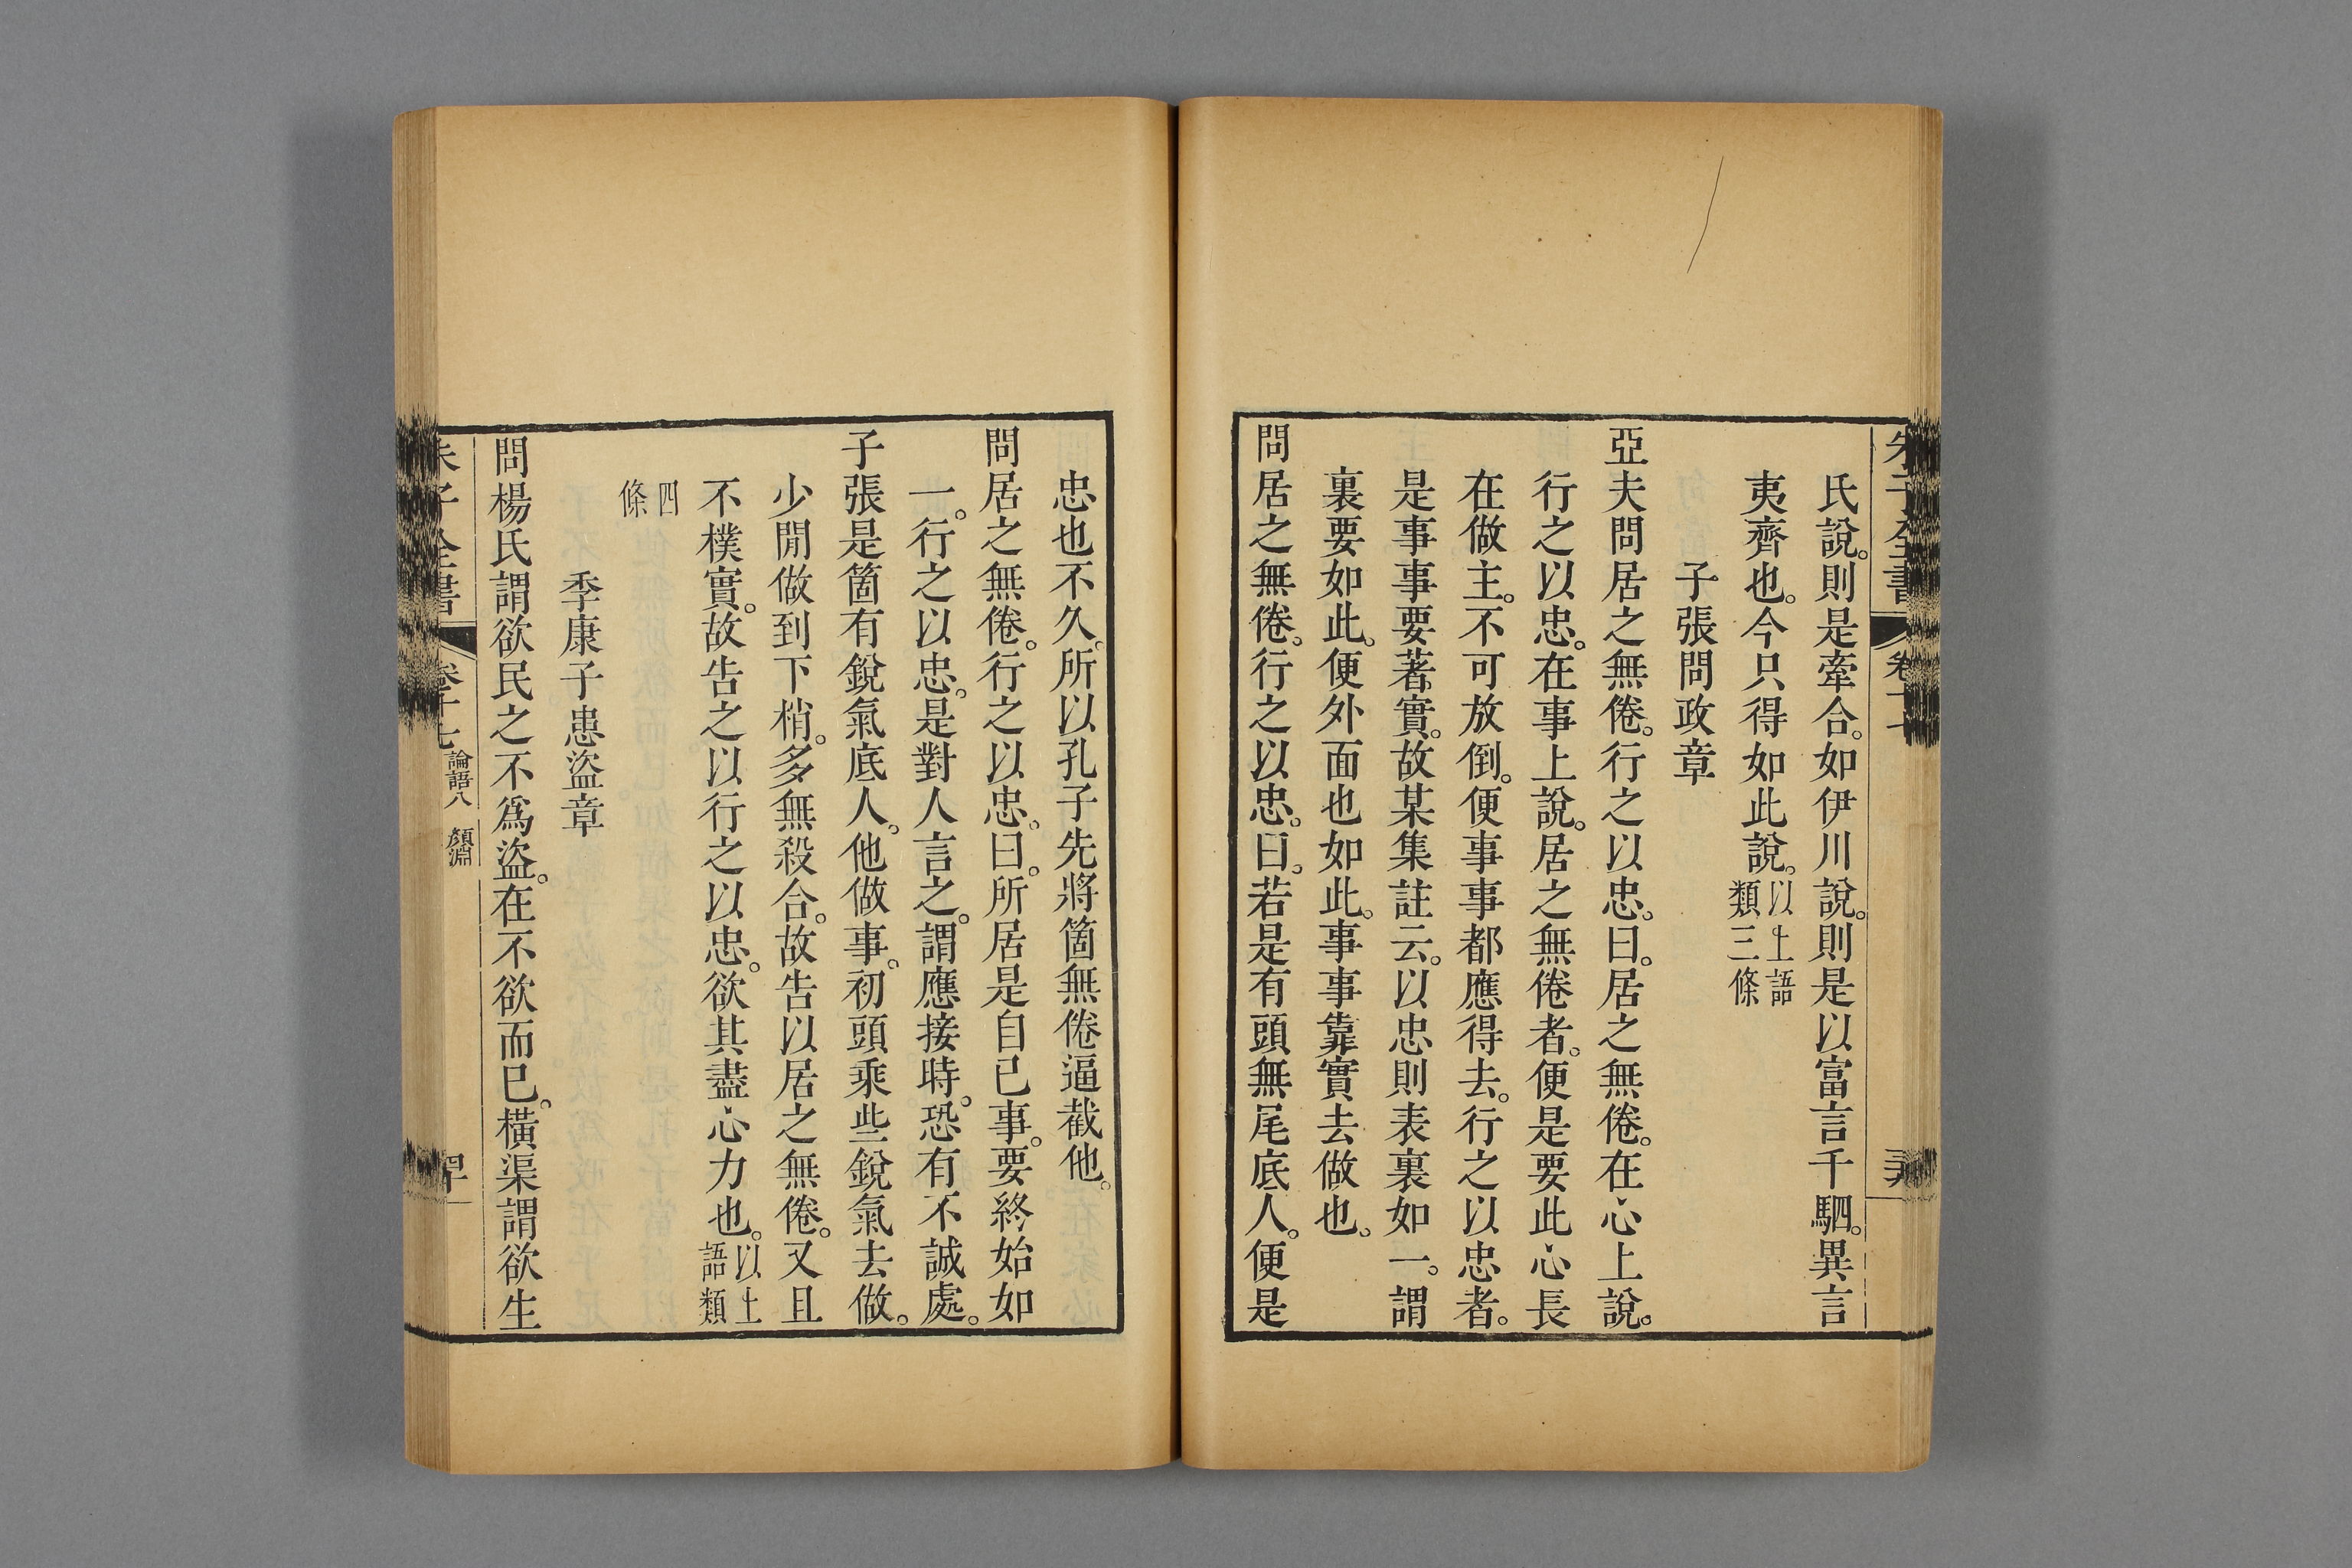 朱子全書
卷十七
氏說。則是牽合。如伊川說。則是以富言千駟。異言
夷齊也。今只得如此說。以上語類三條
子張問政章
亞夫問居之無倦。行之以忠。曰。居之無倦。在心上說。
行之以忠。在事上說。居之無倦者。便是要此心長
在做主。不可放倒。便事事都應得去。行之以忠者。
是事事要著實。故某集註云。以忠則表裏如一。謂
裏要如此。便外面也如此。事事靠實去做也。
問居之無倦。行之以忠。曰。若是有頭無尾底人。便是
忠也不久。所以孔子先將箇無倦逼截他。
問居之無倦。行之以忠。曰。所居是自己事。要終始如
一。行之以忠。是對人言之。謂應接時。恐有不誠處。
子張是箇有銳氣底人。他做事。初頭乘些銳氣去做。
少閒做到下梢。多無殺合。故告以居之無倦。又且
不樸實。故告之以行之以忠。欲其盡心力也。以上語類
四條
季康子患盜章
問楊氏謂欲民之不爲盜。在不欲而已。橫渠謂欲生
朱子全書
卷十七
論語八 顏淵
四十